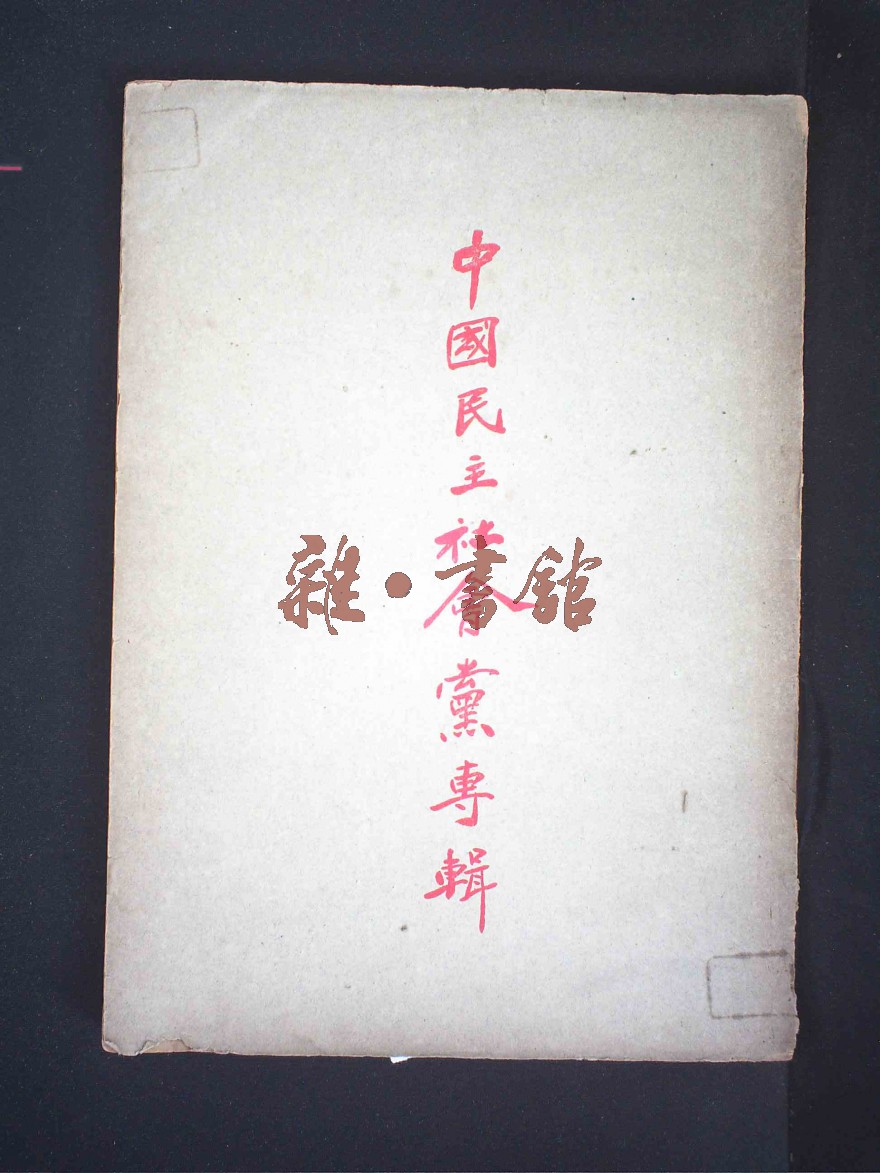 中國民主社會黨專輯
雜·書館